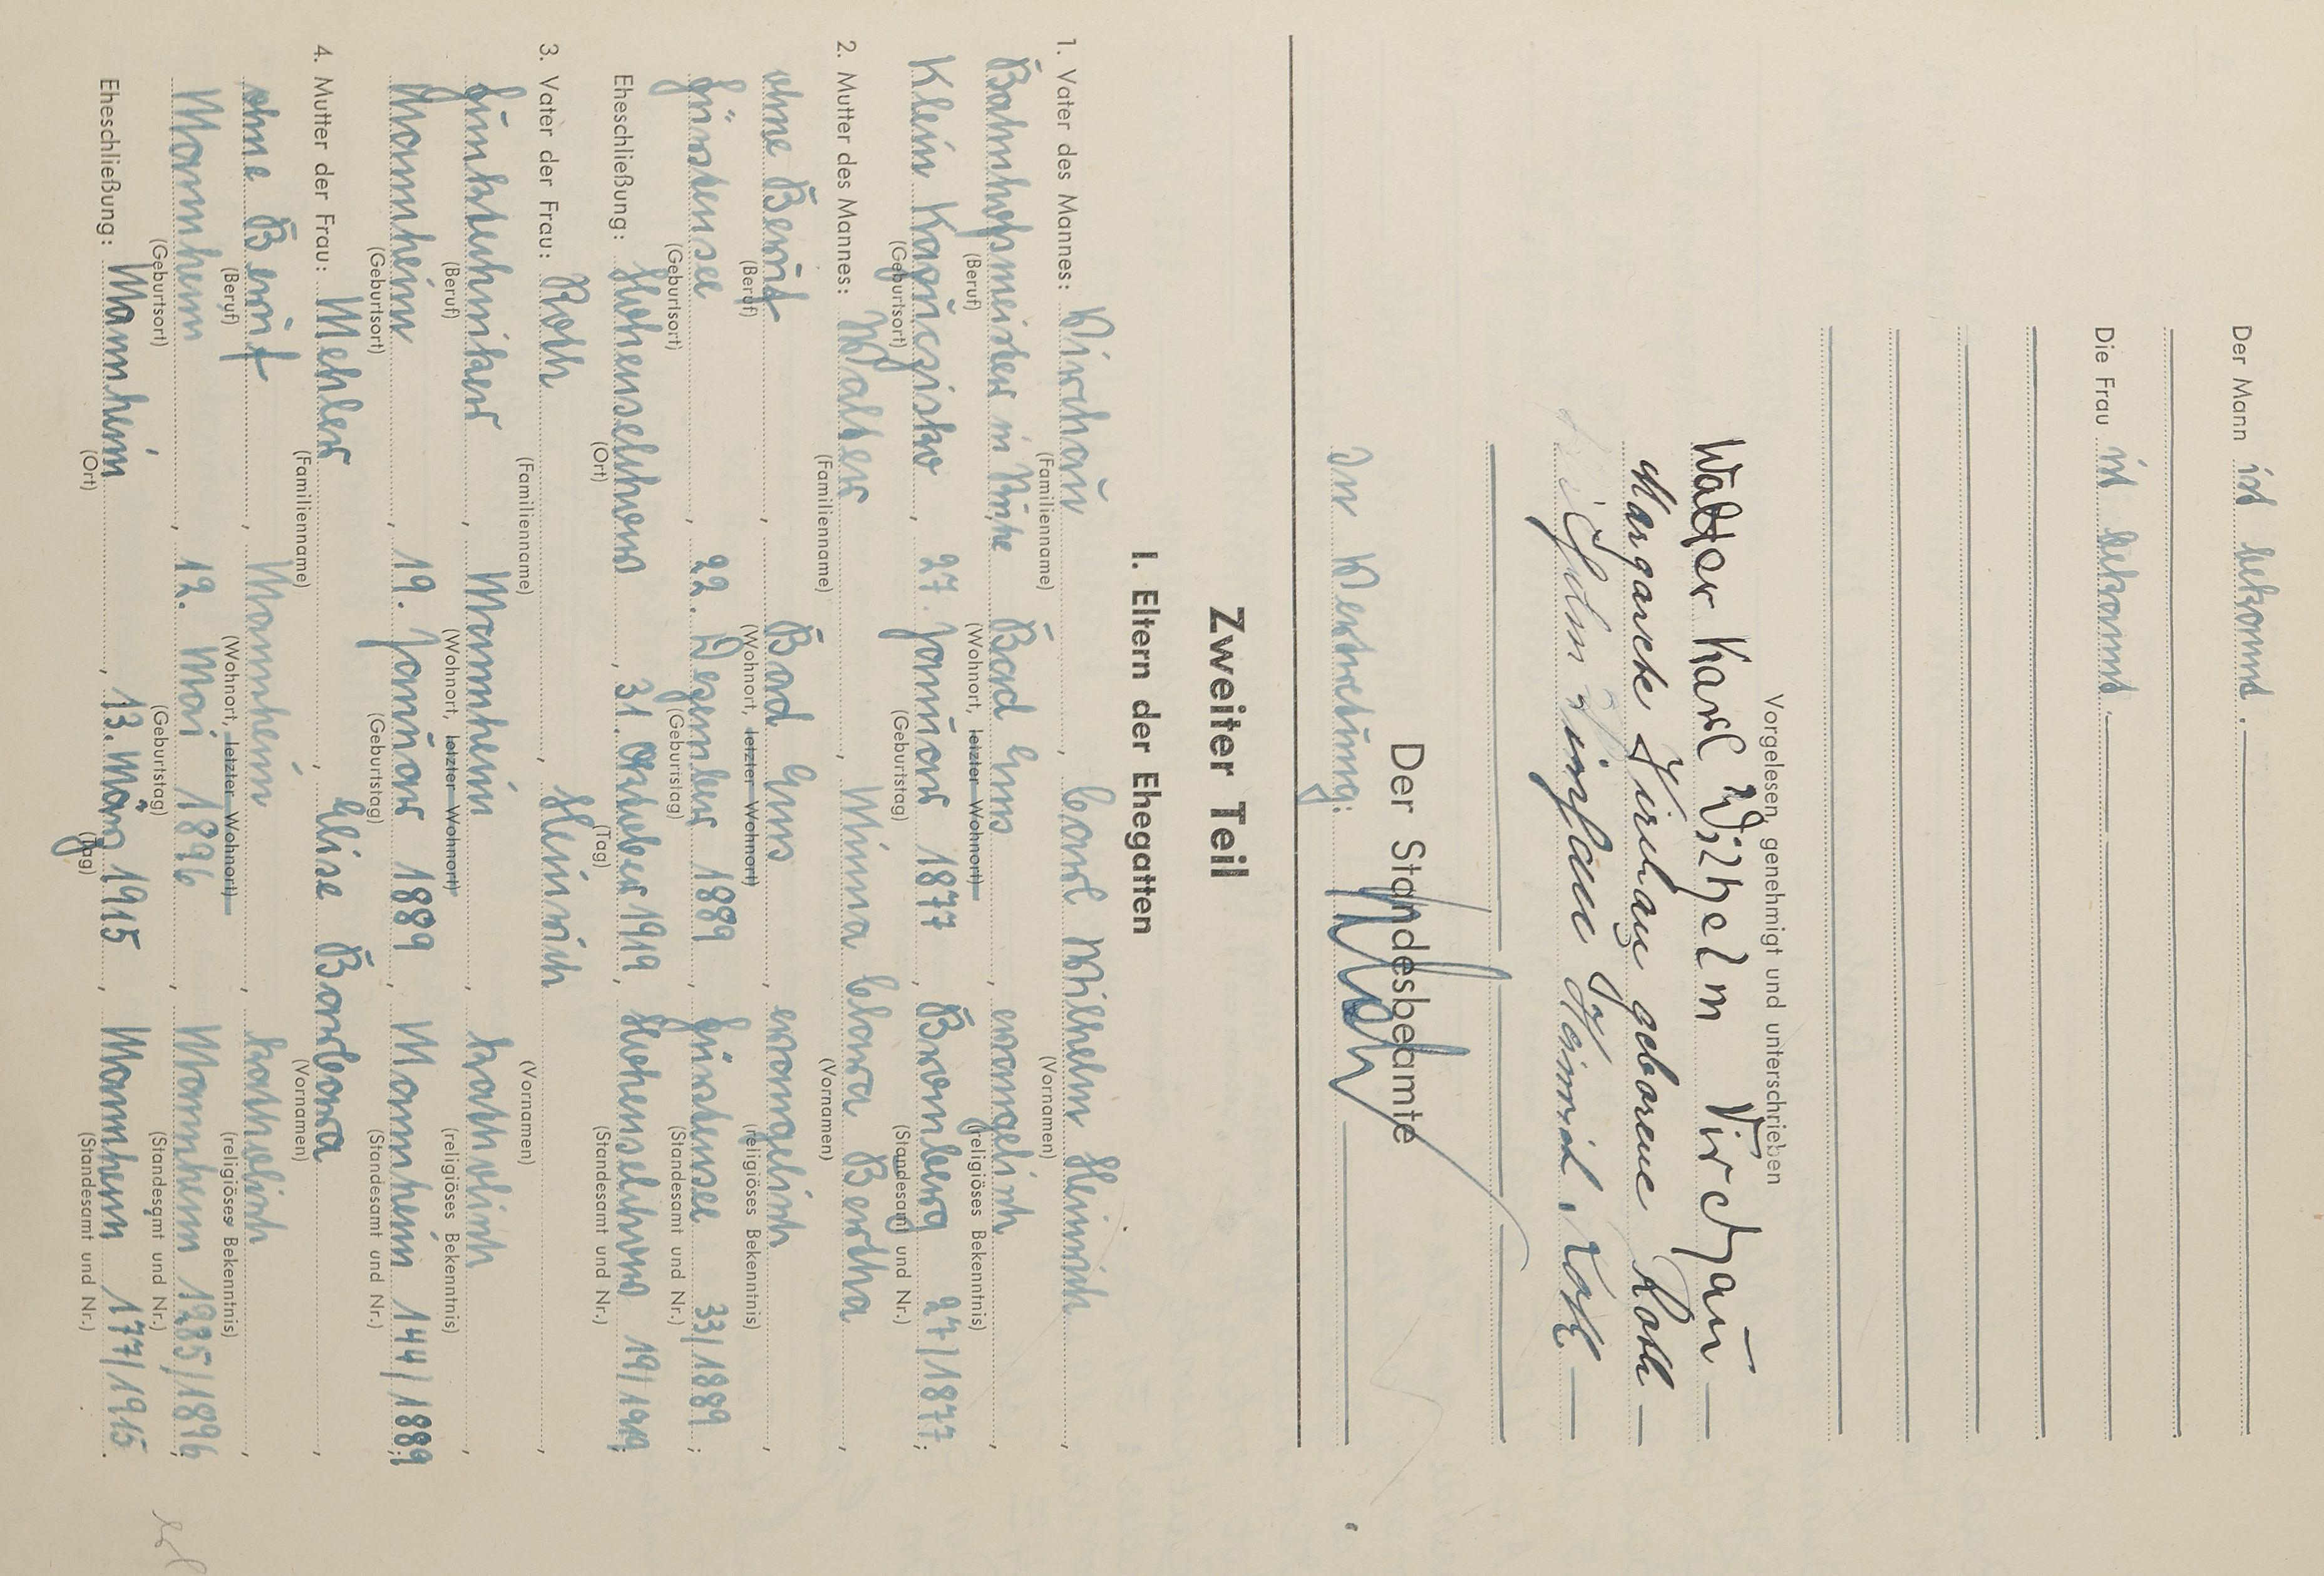 Der Mann ist bekannt.
Die Frau ist bekannt.
Vorgelesen, genehmigt und unterschrieben
Walter Karl Wilhelm Virchau
Margarete Virchau geborene Roth
Heinrich Roth
Der Standesbeamte
In Vertretung:
Zweiter Teil
I. Eltern der Ehegatten
1. Vater des Mannes: Virchau, Carl Wilhelm Heinrich,
(Familienname) (Vornamen)
Bahnhofsmeister in Ruhe Bad Ems, evangelisch,
(Beruf) (Wohnort, letzter Wohnort) (religiöses Bekenntnis)
Klein, 27. Januar 1877, Bromberg 27/1877;
(Geburtsort) (Geburtstag) (Standesamt und Nr.)
2. Mutter des Mannes: Walter, Minna Clara Bertha,
(Familienname) (Vornamen)
ohne Beruf, Bad Ems, evangelisch,
(Beruf) (Wohnort, letzter Wohnort) (religiöses Bekenntnis)
Fürstensee, 22. Dezember 1889, Fürstensee 33/1889;
(Geburtsort) (Geburtstag) (Standesamt und Nr.)
Eheschließung: Hohenselchow, 31. Oktober 1919, Hohenselchow 19/1919;
(Ort) (Tag) (Standesamt und Nr.)
3. Vater der Frau: Roth, Heinrich,
(Familienname) (Vornamen)
Funktechniker, Mannheim, katholisch,
(Beruf) (Wohnort, letzter Wohnort) (religiöses Bekenntnis)
Mannheim, 19. Januar 1889, Mannheim 144/1889;
(Geburtsort) (Geburtstag) (Standesamt und Nr.)
4. Mutter der Frau: Mehler, Elise Barbara,
(Familienname) (Vornamen)
ohne Beruf, Mannheim, katholisch,
(Beruf) (Wohnort, letzter Wohnort) (religiöses Bekenntnis)
Mannheim, 12. Mai 1896, Mannheim 1285/1896;
(Geburtsort) (Geburtstag) (Standesamt und Nr.)
Eheschließung: Mannheim, 13. März 1915, Mannheim 177/1915.
(Ort) (Tag) (Standesamt und Nr.)